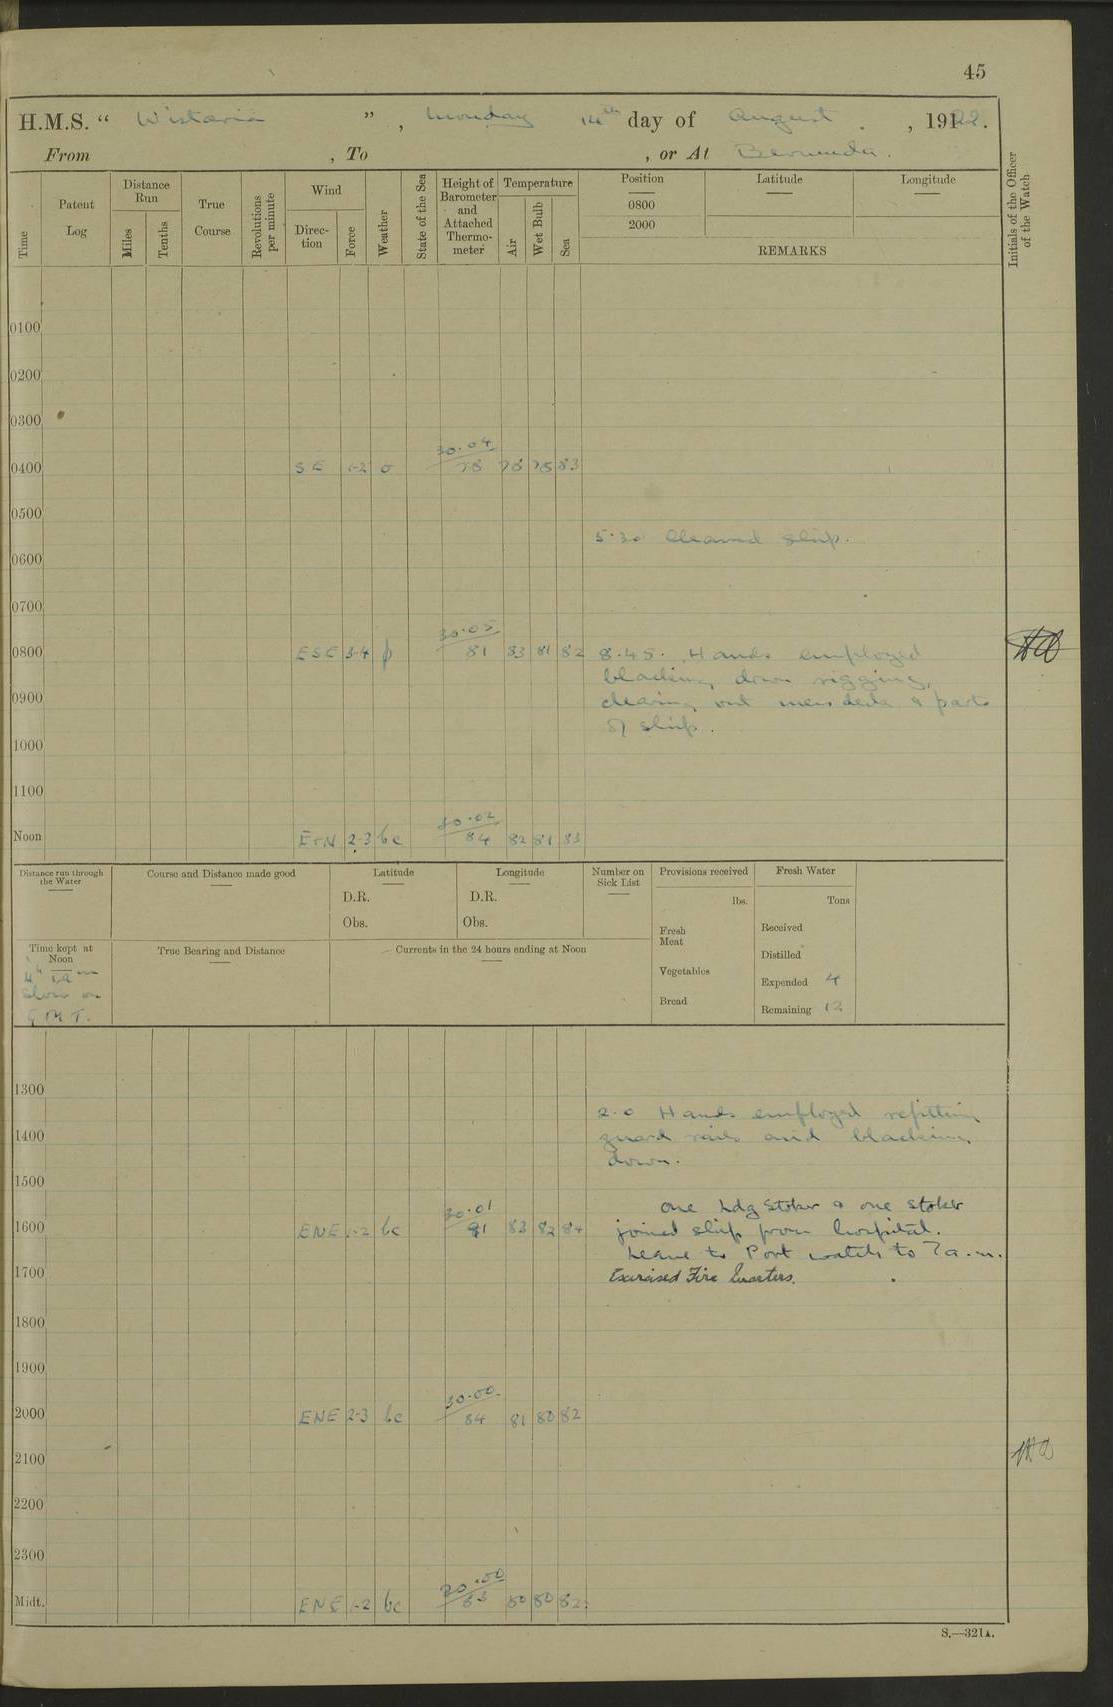 45
H.M.S. “ Wistaria ” , Monday 14th day of August , 1922.
From , To , or At Bermuda.
Time
Patent Log
Distance Run
Miles
Tenths
True Course
Revolutions per minute
Wind
Direction
Force
Weather
State of the Sea
Height of Barometer and Attached Thermometer
Temperature
Air
Wet Bulb
Sea
Position
0800
2000
Latitude
Longitude
REMARKS
Initials of the Officer of the Watch
0100
0200
0300
30.04
0400 SE 1-2 o 78 78 75 83
0500
5.30 Cleaned ship.
0600
0700
30.05
0800 ESE 3-4 81 83 81 82 8.45. Hands employed
blacking down rigging,
0900 clearing out mess deck & parts
of ship.
1000
1100
30.02
Noon ExN 2-3 bc 84 82 81 83
Distance run through the Water
Course and Distance made good
Latitude
D.R.
Obs.
Longitude
D.R.
Obs.
Number on Sick List
Provisions received
lbs.
Fresh Meat
Vegetables
Bread
Fresh Water
Tons
Received
Distilled
Expended 4
Remaining 12
Time kept at Noon
slow on
G.M.T.
True Bearing and Distance
Currents in the 24 hours ending at Noon
1300
2.0 Hands employed refitting
1400 guard rails and blacking
down.
1500
One Ldg Stoker & one stoker
30.01
1600 ENE 1-2 bc 91 83 82 84 joined ship from hospital.
Leave to Port watch to 7 a.m.
1700 Exercised Fire Quarters.
1800
1900
30.00
2000 ENE 2-3 bc 84 81 80 82
2100
2200
2300
30.00
Midt. ENE 1-2 bc 83 80 80 82
S.—321A.